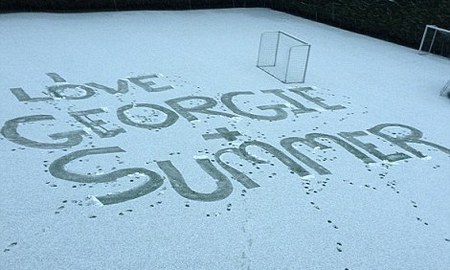 I LOVE
GEORGIE
+
SUMMER